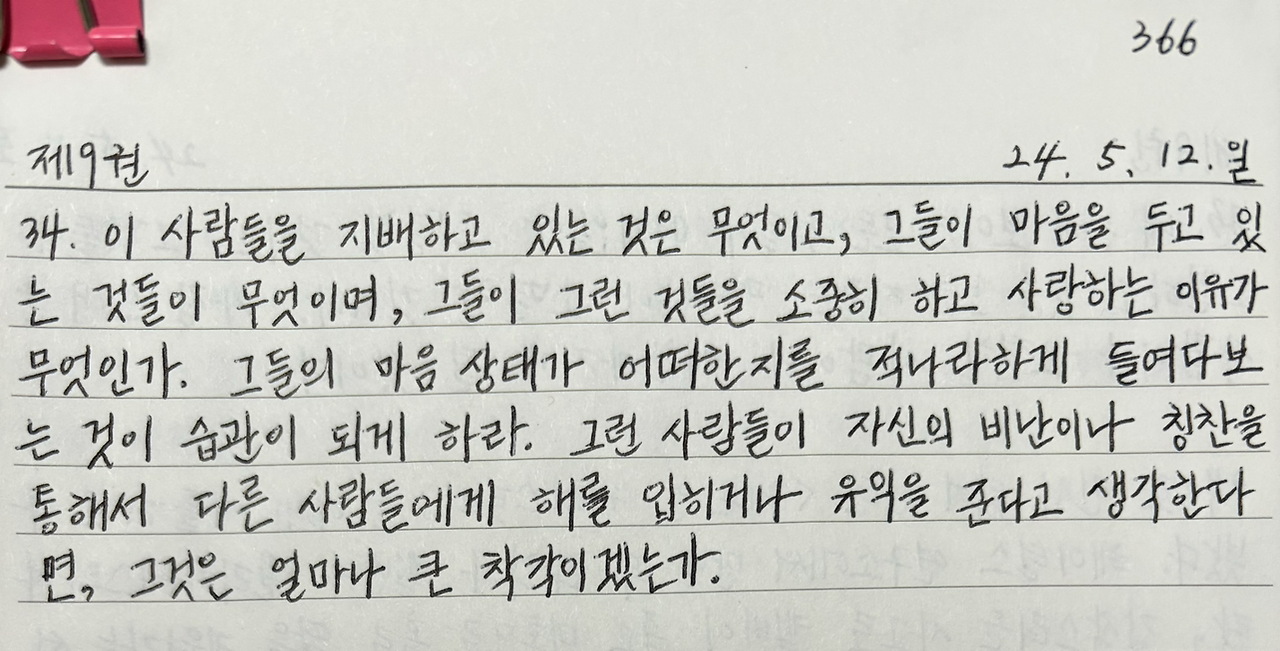 366
제9권 24. 5. 12. 일
34. 이 사람들을 지배하고 있는 것은 무엇이고, 그들이 마음을 두고 있
는 것들이 무엇이며, 그들이 그런 것들을 소중히 하고 사랑하는 이유가
무엇인가. 그들의 마음 상태가 어떠한지를 적나라하게 들여다보
는 것이 습관이 되게 하라. 그런 사람들이 자신의 비난이나 칭찬을
통해서 다른 사람들에게 해를 입히거나 유익을 준다고 생각한다
면, 그것은 얼마나 큰 착각이겠는가.